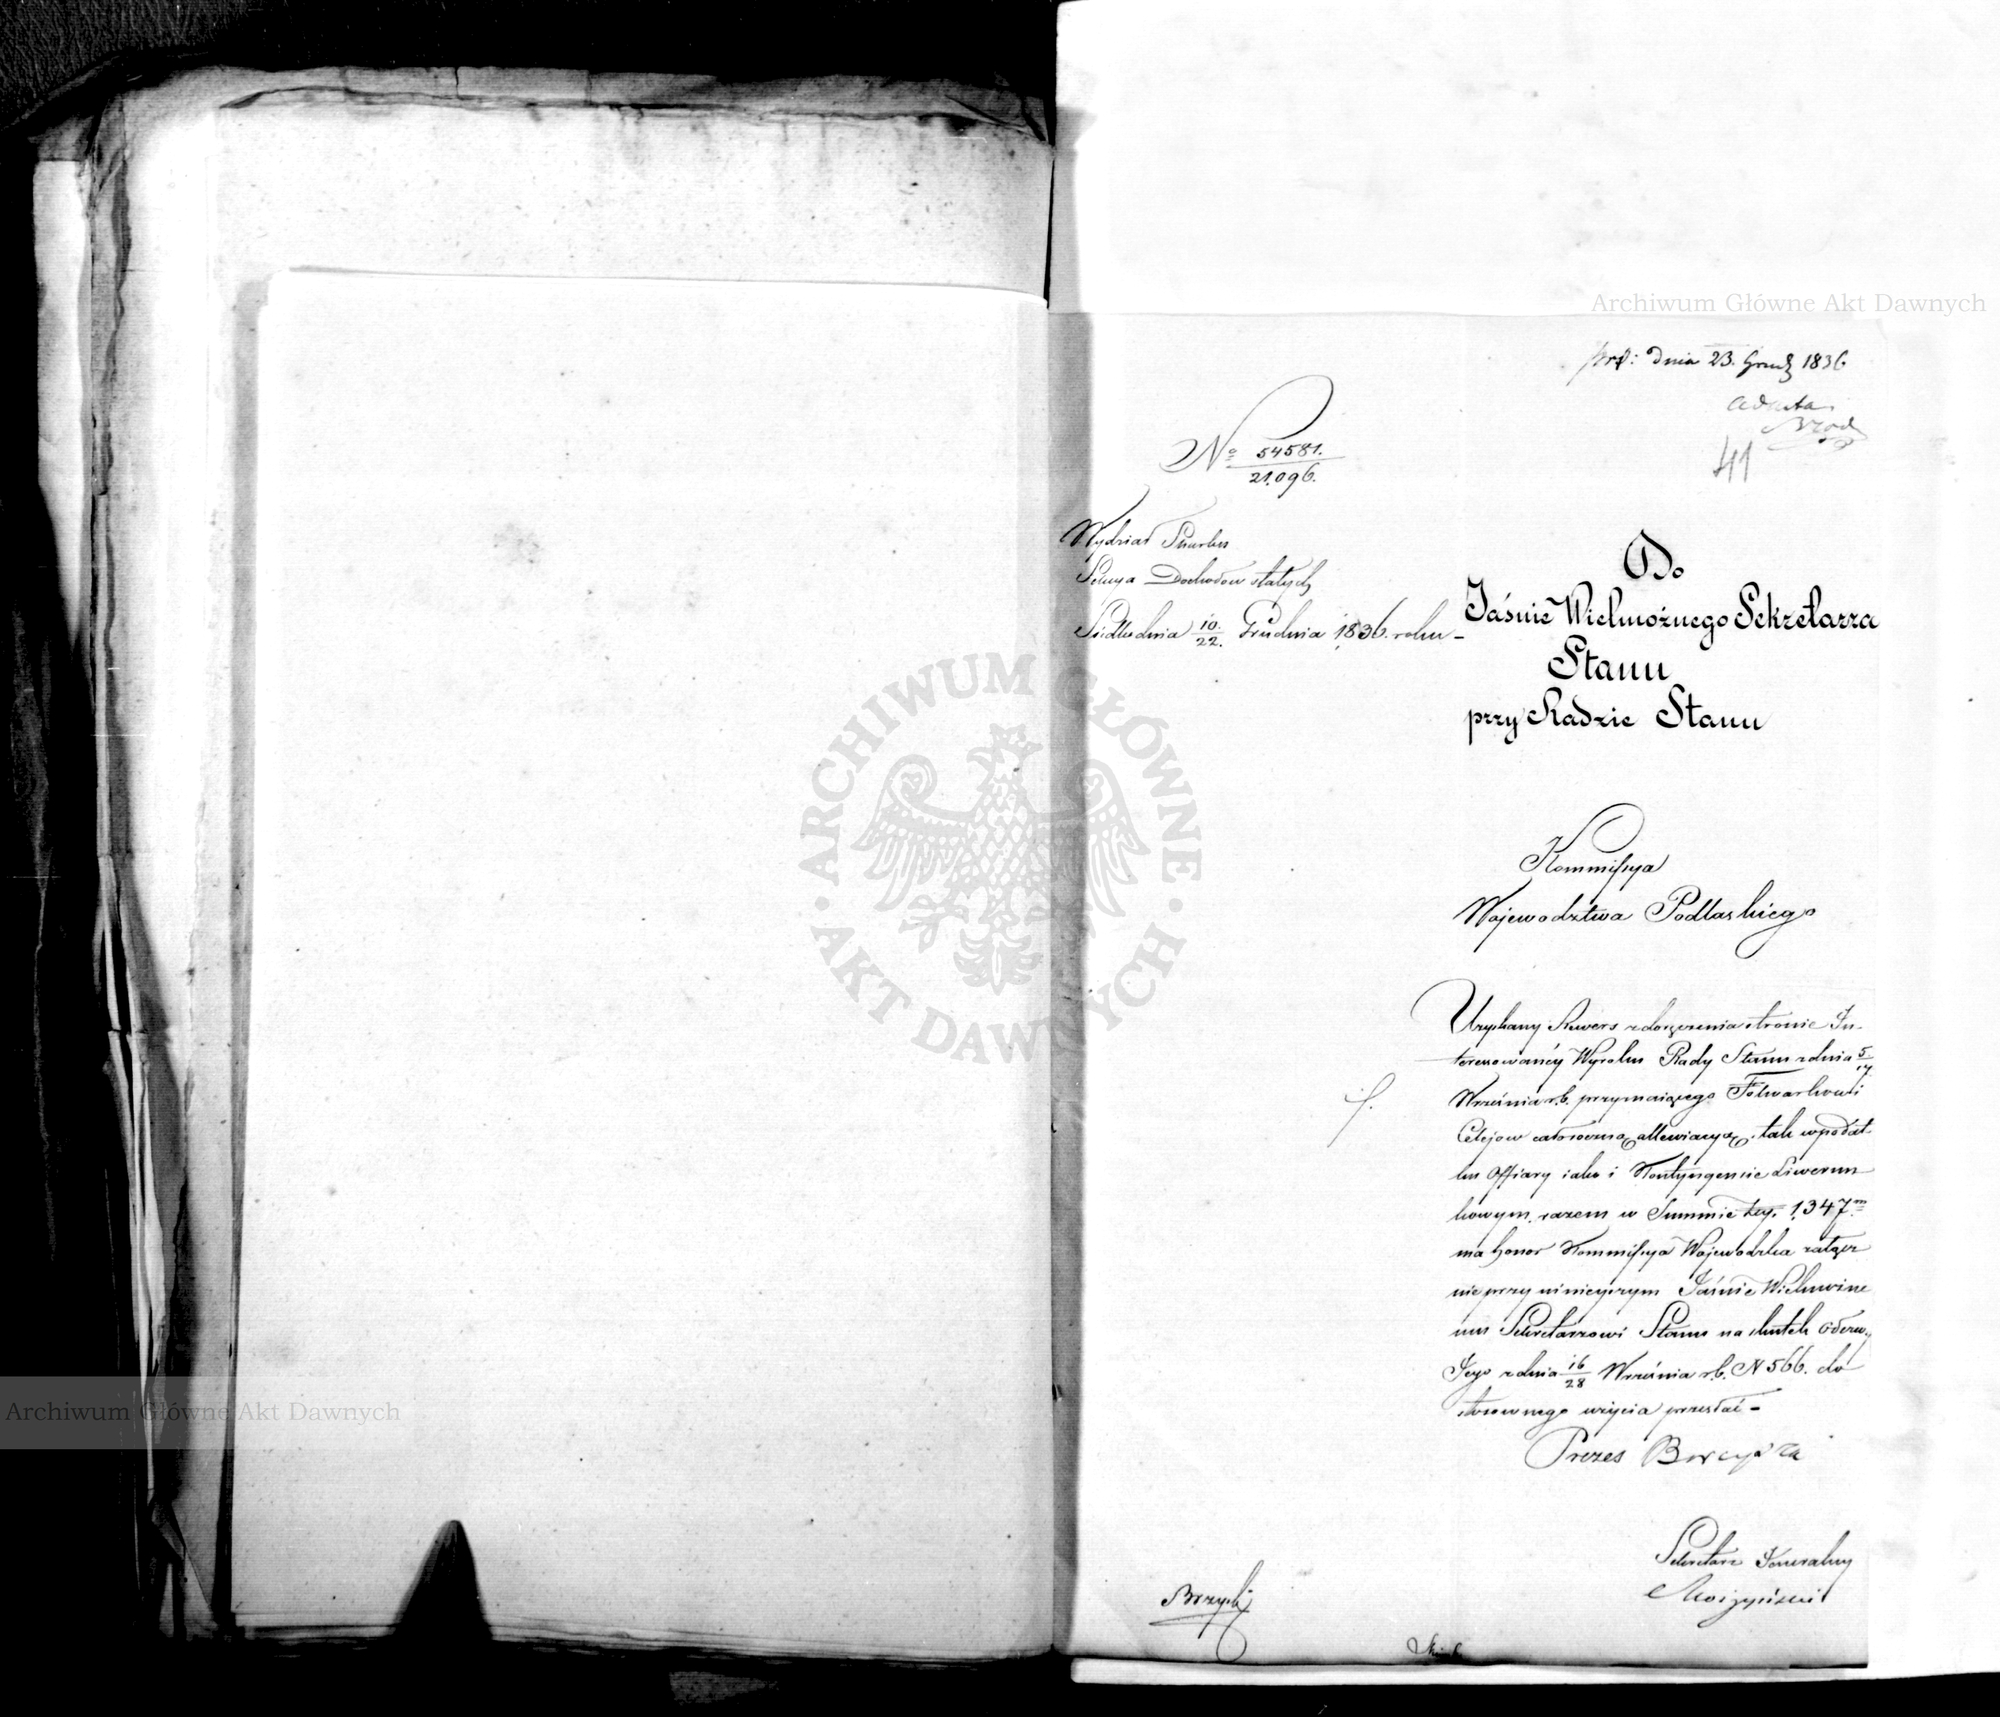 Archiwum Główne Akt Dawnych
dnia 23. Grud 1836
ad acta
41
No 54581.
21.096.
Wydział Skarbu
Sekcya Dochodów stałych
Siedlce dnia 10./22. Grudnia 1836. roku -
Do
Jaśnie Wielmożnego Sekretarza
Stanu
przy Radzie Stanu
Kommissya
Województwa Podlaskiego
Uzyskany Rewers z doręczenia stronie In-
teressowanéy Wyroku Rady Stanu z dnia 5/17
Września r.b. przyznaiącego Folwarkowi
Celejow całoroczną allewiacyą, tak w podat
ku Offiary iako i Kontyngensie Liwerun
kowym, razem w Summie złp. 1,347
ma honor Kommissya Wojewódzka załącz
nie przy ninieyszym Jaśnie Wielmożne
mu Sekretarzowi Stanu na skutek Odezwy
Jego z dnia 16/28 Września r.b. N 566. do
stosownego użycia przesłać -
Prezes
Sekretarz Jeneralny
ARCHIWUM GŁÓWNE
AKT DAWNYCH
Archiwum Główne Akt Dawnych